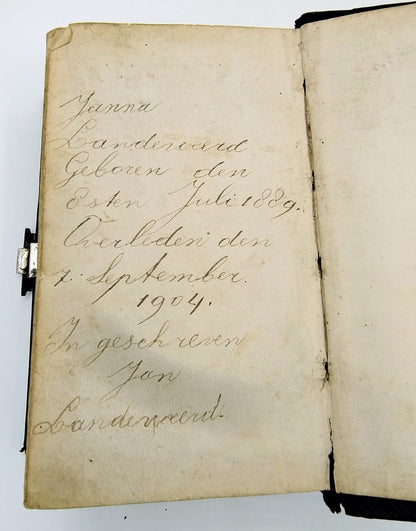 Janna
Landeweerd
Geboren den
8sten Juli 1889.
Overleden den
7. September.
1904.
In geschreven
Jan
Landeweerd.